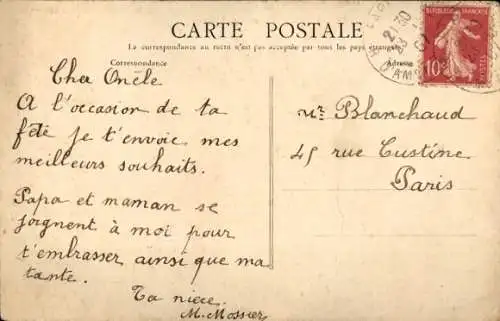 CARTE POSTALE
La correspondance au recto n'est pas acceptée par tous les pays étrangers
Correspondance
Adresse
RÉPUBLIQUE FRANÇAISE
10c
POSTES
21 30
Cher Oncle
A l'occasion de ta
fête je t'envoie mes
meilleurs souhaits.
Papa et maman se
joignent à moi pour
t'embrasser ainsi que ma
tante.
Ta nièce
M. Mossier
Mr Blanchaud
45 rue Custine
Paris